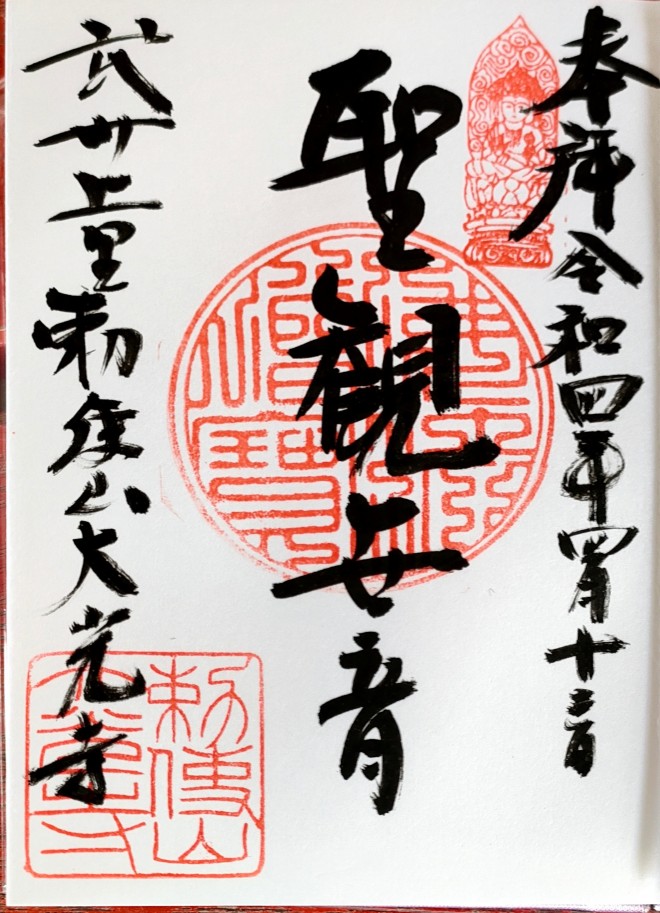 奉拝 令和四年四月十二日
聖観世音
武州上里勅使山大光寺
勅使山
大光寺